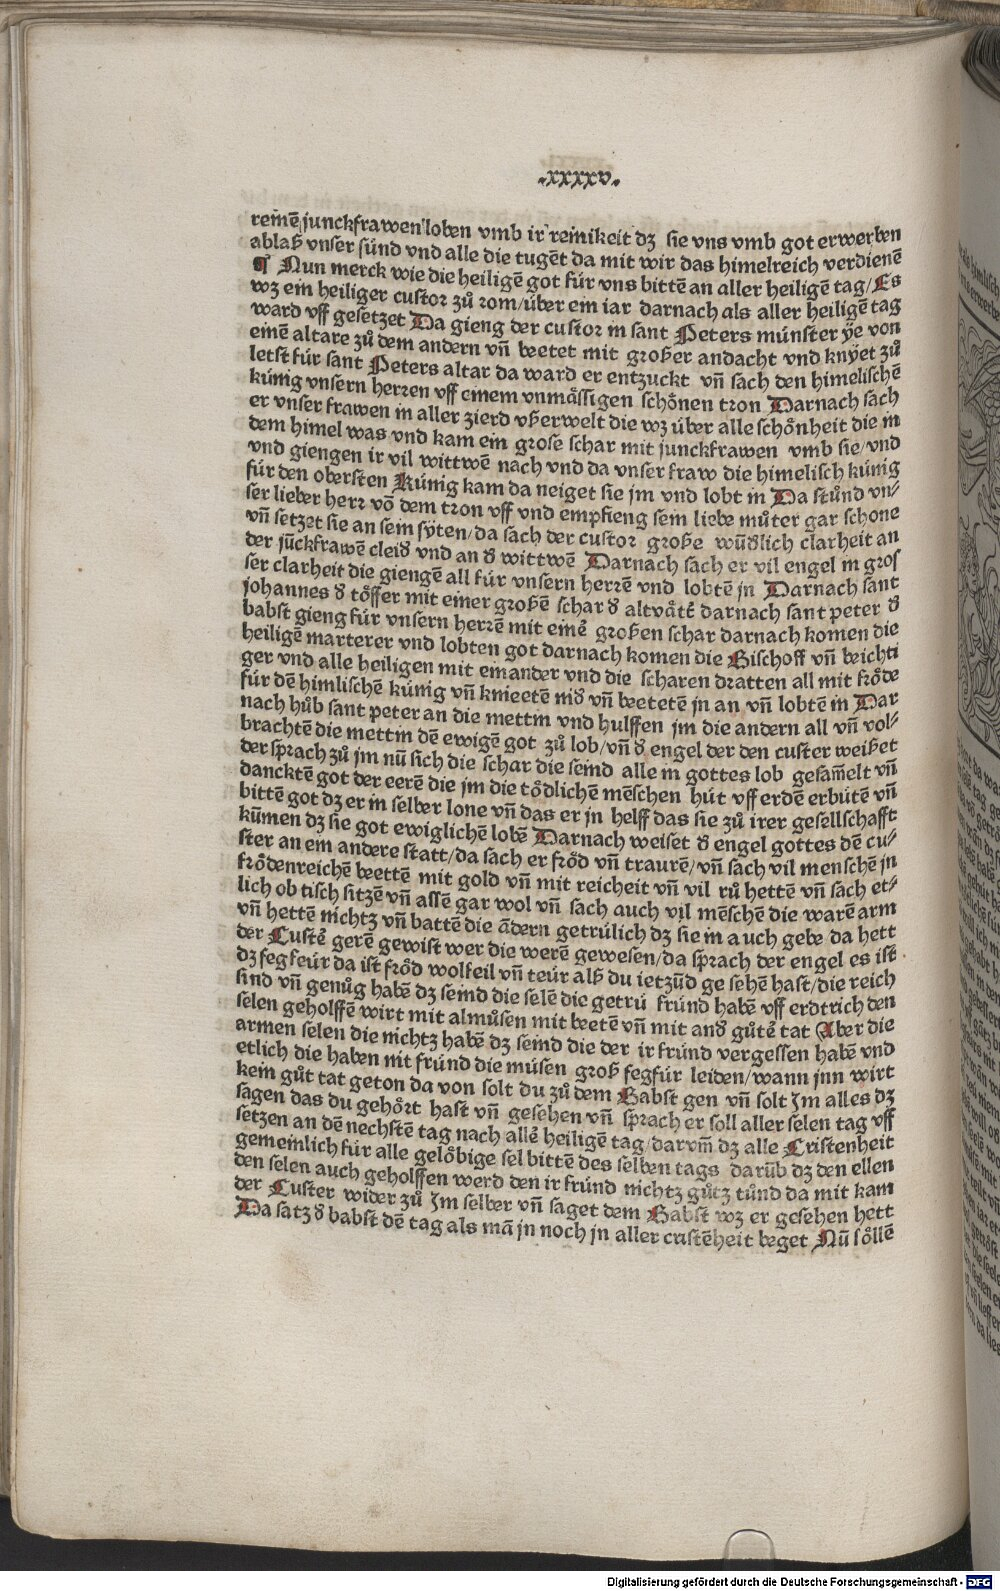 .xxxxv.
reinē junckfrawen loben vmb ir reinikeit dz sie vns vmb got erwerben
ablaß vnser sünd vnd alle die tugēt da mit wir das himelreich verdienē
¶ Nun merck wie die heiligē got für vns bittē an aller heiligē tag/Es
wz ein heiliger custor zů rom/über ein iar darnach als aller heiligē tag
ward vff gesetzet Da gieng der custor in sant Peters münster ye von
einē altare zů dem andern vñ beetet mit großer andacht vnd knyet zů
letst für sant Peters altar da ward er entzuckt vñ sach den himelischē
künig vnsern herren vff einem vnmässigen schönen tron Darnach sach
er vnser frawen in aller zierd vßerwelt die wz über alle schönheit die in
dem himel was vnd kam ein grose schar mit junckfrawen vmb sie/vnd
vnd giengen ir vil wittwē nach vnd da vnser fraw die himelisch künig
für den obersten Künig kam da neiget sie jm vnd lobt in Da stůnd vn⸗
ser lieber herr vō dem tron vff vnd empfieng sein liebe můter gar schone
vñ setzet sie an sein syten/da sach der custor große wūdlich clarheit an
der jūckfrawē cleid vnd an d wittwē Darnach sach er vil engel in gros
ser clarheit die giengē all für vnsern herrē vnd lobtē jn Darnach sant
johannes d töffer mit einer großē schar d altvätē darnach sant peter d
babst gieng für vnsern herrē mit einē großen schar darnach komen die
heiligē marterer vnd lobten got darnach komen die Bischoff vñ beichti
ger vnd alle heiligen mit einander vnd die scharen dratten all mit fröde
für dē himlischē künig vñ knieetē nid vñ beetetē jn an vñ lobtē in Dar
nach hůb sant peter an die mettin vnd hulffen jm die andern all vñ vol⸗
brachtē die mettin dē ewigē got zů lob/vñ d engel der den custer weißet
der sprach zů jm nū sich die schar die seind alle in gottes lob gesam̄elt vñ
dancktē got der eerē die jm die tödlichē mēschen hüt vff erdē erbütē vñ
bittē got dz er in selber lone vñ das er jn helff das sie zů irer gesellschafft
kūmen dz sie got ewiglichē lobē Darnach weiset d engel gottes dē cu⸗
ster an ein andere statt/da sach er fröd vñ traurē/vñ sach vil menschē jn
frödenreichē beettē mit gold vñ mit reicheit vñ vil rů hettē vñ sach et⸗
lich ob tisch sitzē vñ assē gar wol vñ sach auch vil mēschē die warē arm
vñ hettē nichtz vñ battē die ādern getrülich dz sie in auch gebe da hett
der Custē gerē gewist wer die werē gewesen/da sprach der engel es ist
dz fegfeür da ist fröd wolfeil vñ teür alß du ietzūd ge sehē hast/die reich
sind vñ genůg habē dz seind die selē die getrü fründ habē vff erdtrich den
selen geholffē wirt mit almůsen mit beetē vñ mit and gůtē tat Aber die
armen selen die nichtz habē dz seind die der ir fründ vergessen habē vnd
etlich die haben nit fründ die müsen groß fegfür leiden/wann jnn wirt
kein gůt tat geton da von solt du zů dem Babst gen vñ solt Jm alles dz
sagen das du gehört hast vñ gesehen vñ sprach er soll aller selen tag vff
setzen an dē nechstē tag nach allē heiligē tag/darvm̄ dz alle Cristenheit
gemeinlich für alle gelöbige sel bittē des selben tags darūb dz den ellen
den selen auch geholffen werd den ir fründ nichtz gůtz tůnd da mit kam
der Custer wider zů Jm selber vñ saget dem Babst wz er gesehen hett
Da satz d babst dē tag als mā jn noch jn aller cristēheit beget Nū söllē
Digitalisierung gefördert durch die Deutsche Forschungsgemeinschaft - DFG